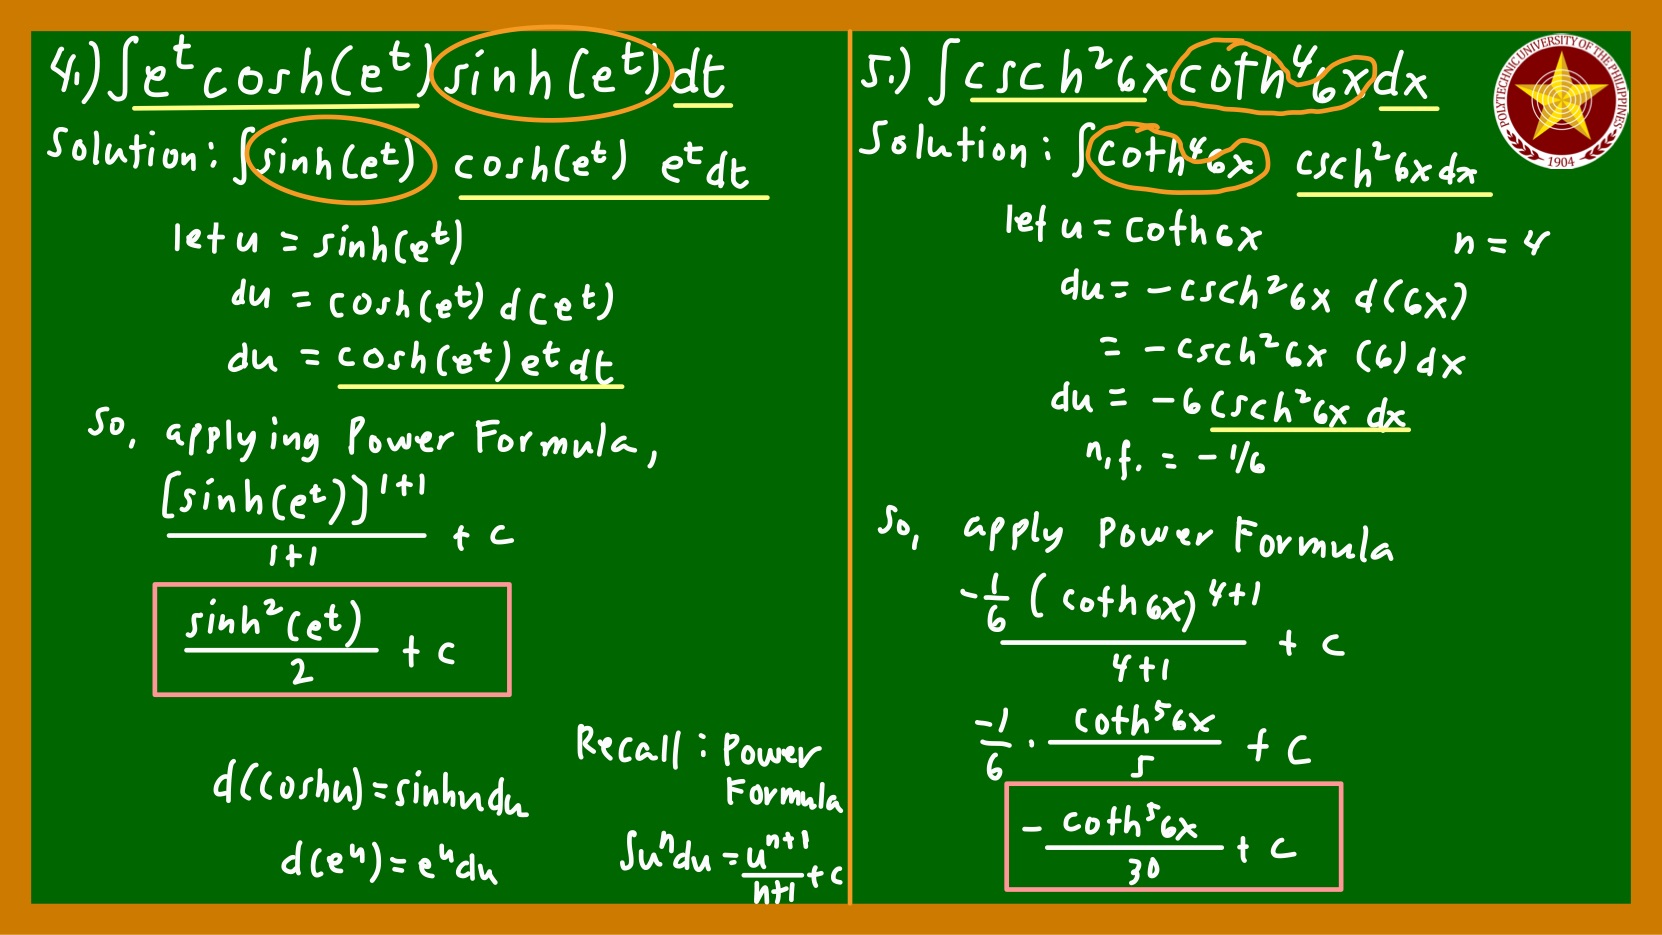 4.) ∫e^t cosh(e^t) sinh(e^t) dt
Solution: ∫sinh(e^t) cosh(e^t) e^t dt
let u = sinh(e^t)
du = cosh(e^t) d(e^t)
du = cosh(e^t) e^t dt
So, applying Power Formula,
[sinh(e^t)]^1+1
1+1
+ c
sinh²(e^t)
2
+ c
d(coshu) = sinhudu
d(e^u) = e^u du
Recall: Power
Formula
∫u^n du = u^n+1
n+1
+ c
5.) ∫csch²6x coth⁴6x dx
Solution: ∫coth⁴6x csch²6x dx
let u = coth6x n = 4
du = -csch²6x d(6x)
= -csch²6x (6)dx
du = -6 csch²6x dx
n.f. = -1/6
So, apply Power Formula
-1/6 (coth6x)^4+1
4+1
+ c
-1/6 · coth⁵6x
5
+ c
- coth⁵6x
30
+ c
POLYTECHNIC UNIVERSITY OF THE PHILIPPINES
1904